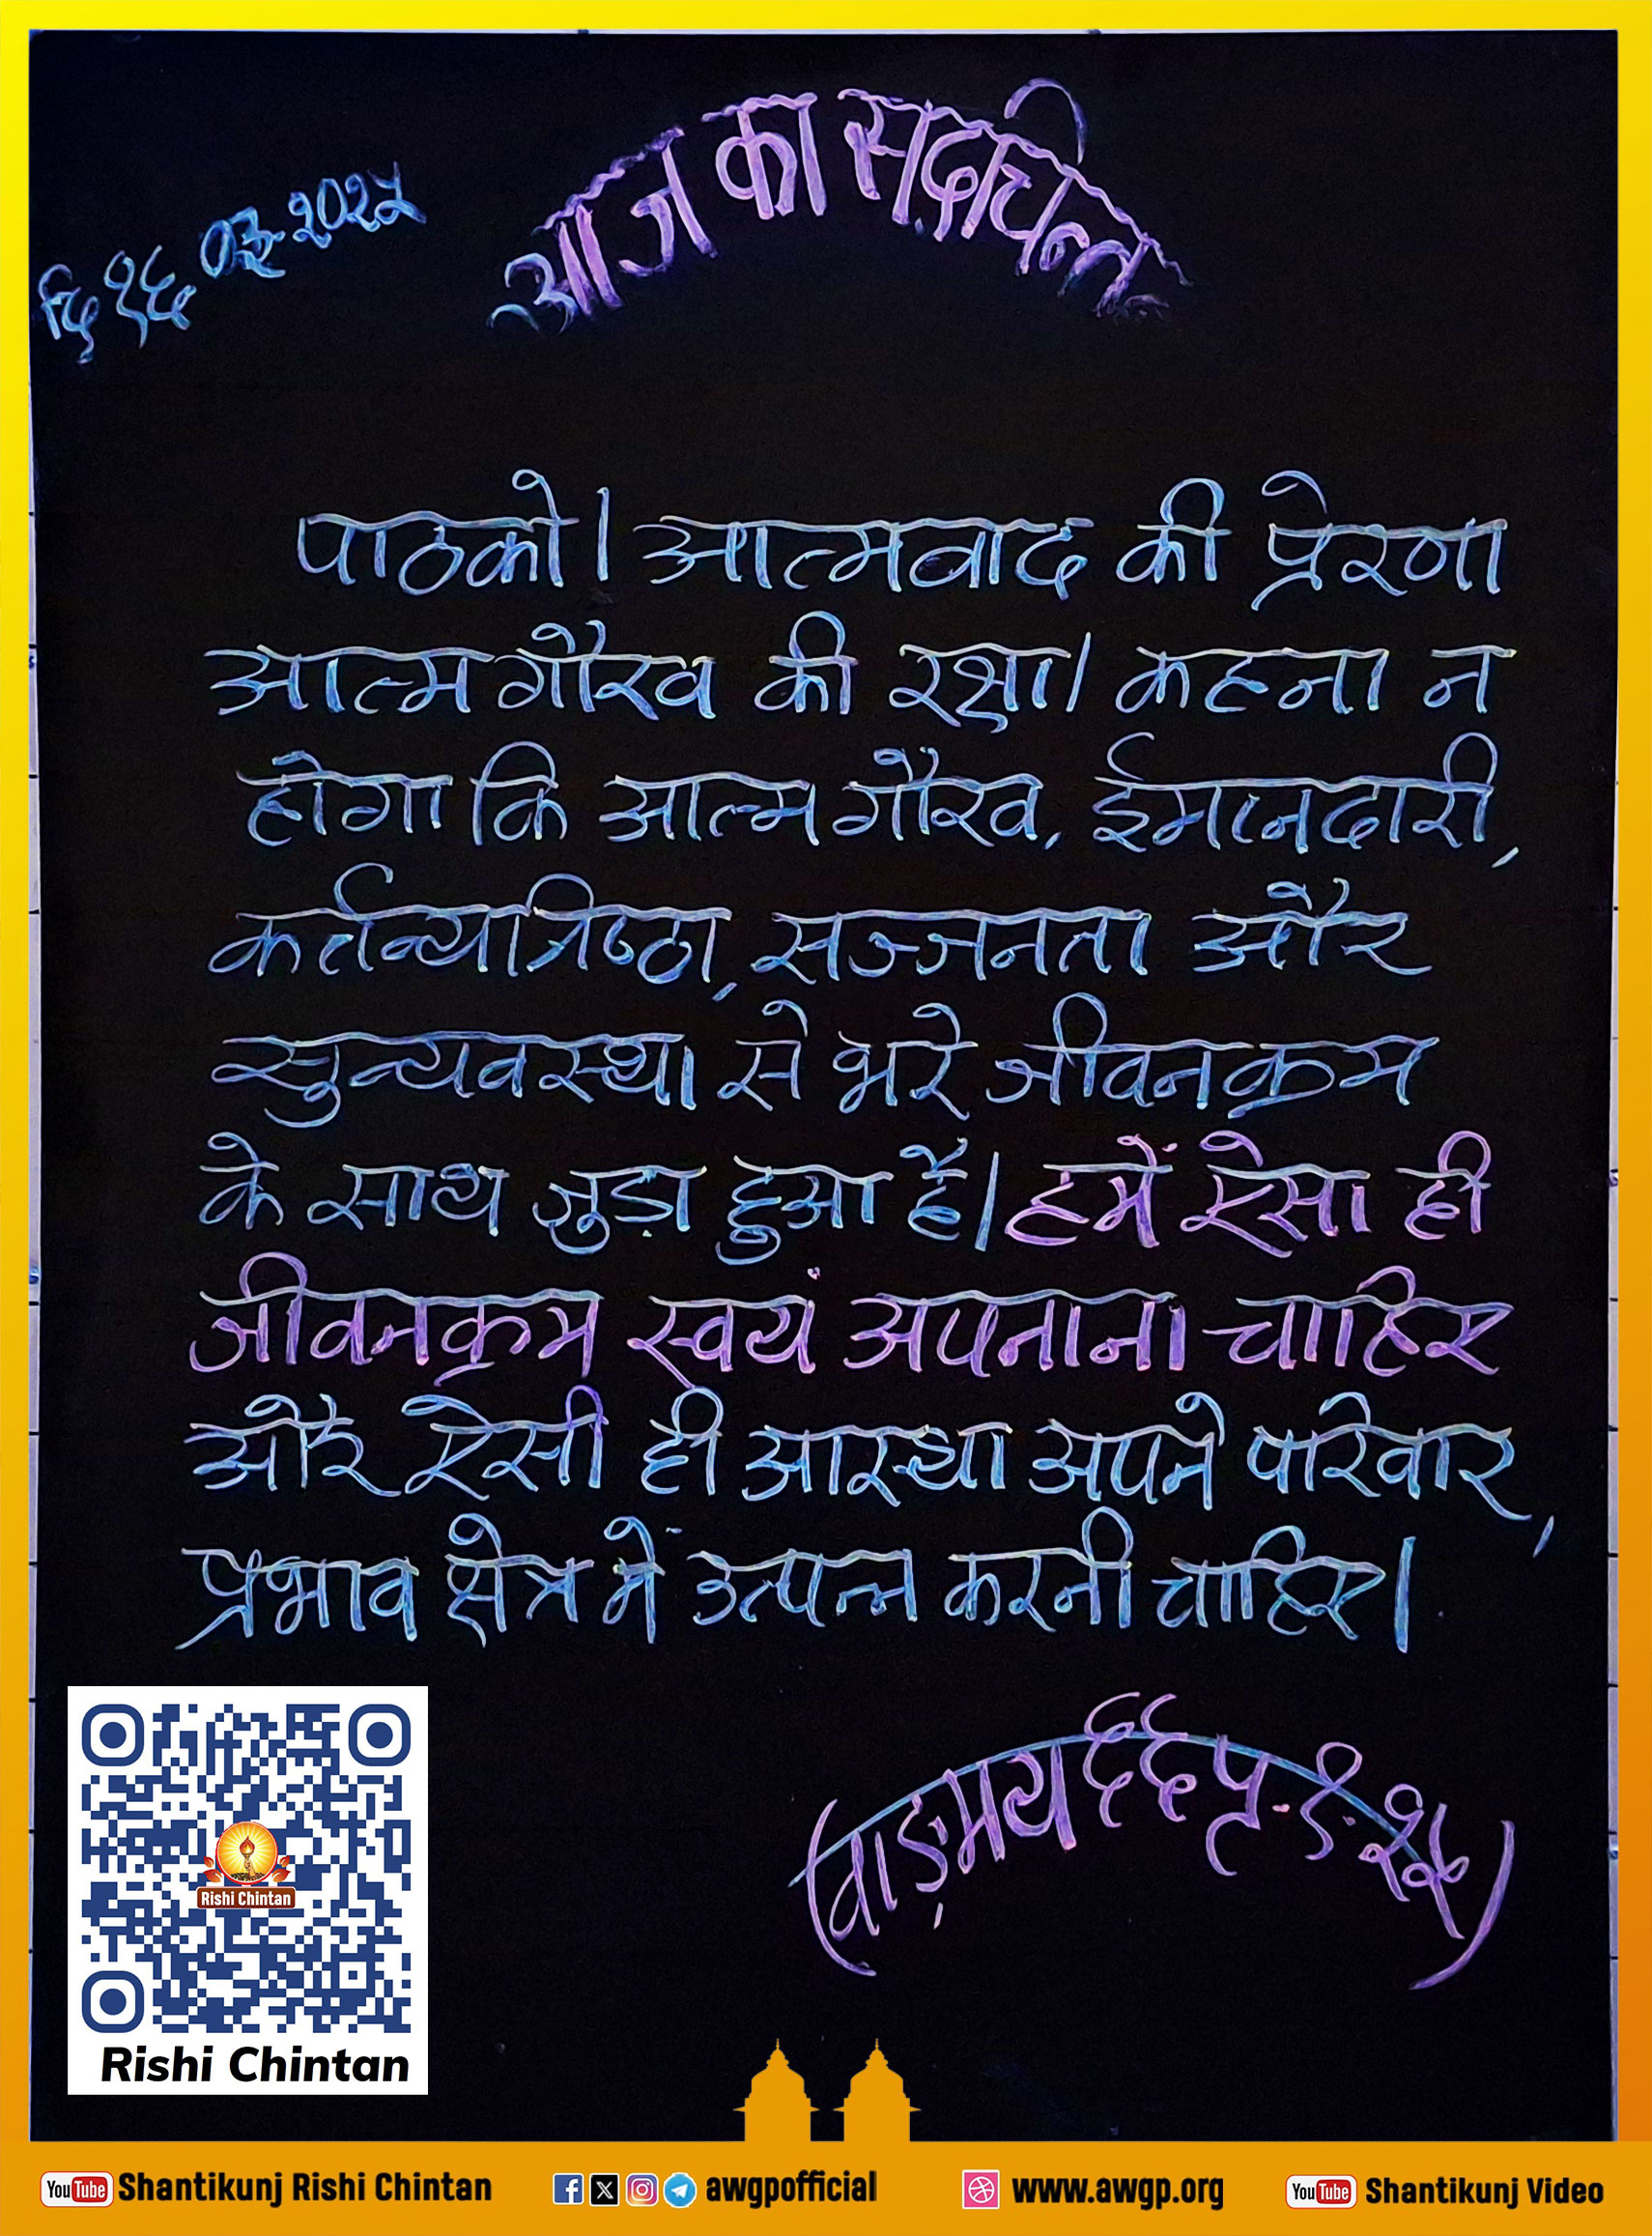 आज का सद्चिन्तन
दि १६ ०३-२०२५
पाठको। आत्मवाद की प्रेरणा
आत्मगौरव की रक्षा। कहना न
होगा कि आत्मगौरव, ईमानदारी,
कर्तव्यनिष्ठा, सज्जनता और
सुव्यवस्था से भरे जीवनक्रम
के साथ जुड़ा हुआ है। हमें ऐसा ही
जीवनक्रम स्वयं अपनाना चाहिए
और ऐसी ही आस्था अपने परिवार,
प्रभाव क्षेत्र में उत्पन्न करनी चाहिए।
(वाङ्मय ६६ पृ.
Rishi Chintan
Rishi Chintan
YouTube Shantikunj Rishi Chintan awgpofficial www.awgp.org YouTube Shantikunj Video